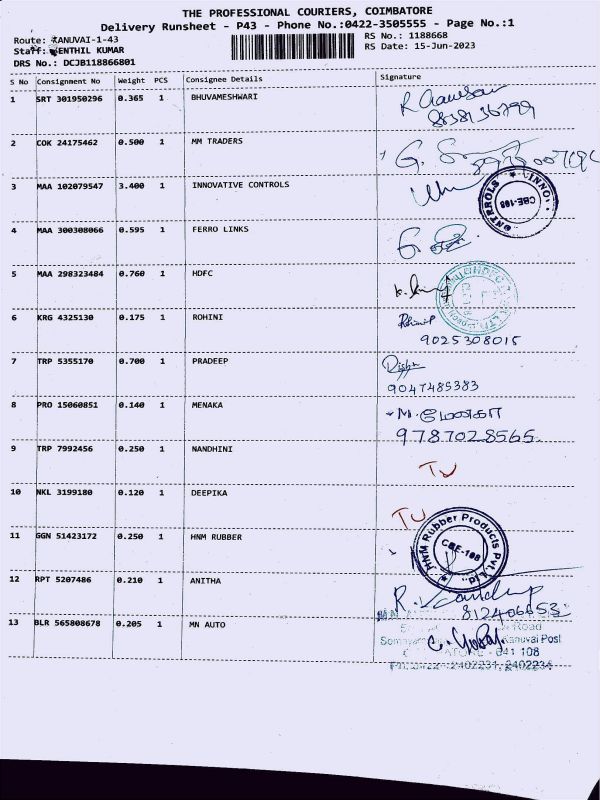 THE PROFESSIONAL COURIERS, COIMBATORE
Delivery Runsheet - P43 - Phone No.:0422-3505555 - Page No.:1
Route: KANUVAI-1-43
RS No.: 1188668
Staff: SENTHIL KUMAR
RS Date: 15-Jun-2023
DRS No.: DCJB118866801
S No Consignment No Weight PCS Consignee Details Signature
1 SRT 301950296 0.365 1 BHUVAMESHWARI
2 COK 24175462 0.500 1 MM TRADERS
3 MAA 102079547 3.400 1 INNOVATIVE CONTROLS
CBE-108
4 MAA 300308066 0.595 1 FERRO LINKS
5 MAA 298323484 0.760 1 HDFC
6 KRG 4325130 0.175 1 ROHINI
9025308015
7 TRP 5355170 0.700 1 PRADEEP
9047485383
8 PRO 15060851 0.140 1 MENAKA M. மேனகா
9787028565
9 TRP 7992456 0.250 1 NANDHINI
10 NKL 3199180 0.120 1 DEEPIKA
11 GGN 51423172 0.250 1 HNM RUBBER
HNM Rubber Products Pvt. Ltd.
CBE-108
12 RPT 5207486 0.210 1 ANITHA
13 BLR 565808678 0.205 1 MN AUTO
Road
Kanuvai Post
641 108
2402231, 2402234